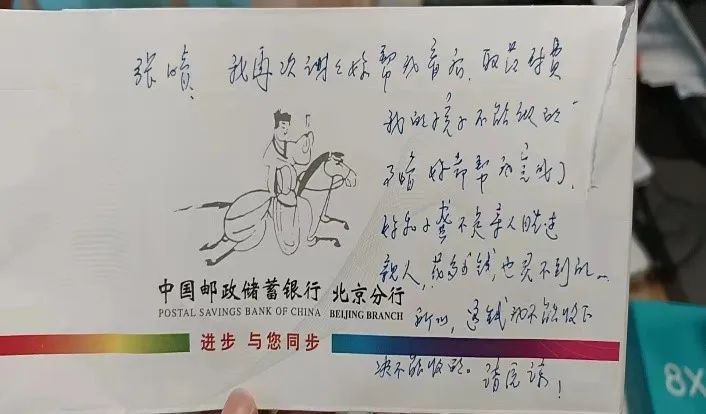 张晴，我再次谢谢妳帮我看病、取药付费
我的孩子不能做的
事情妳都帮我完成了，
妳和小龚不是亲人胜过
亲人，花多少钱，也买不到的。
中国邮政储蓄银行 北京分行
POSTAL SAVINGS BANK OF CHINA BEIJING BRANCH
所以，这钱我不能收下
进步 与您同步
决不能收的。请原谅！
8X